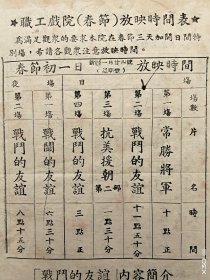 ★職工戲院(春節)放映時間表★
爲滿足觀衆的要求本院在春節三天加開日間特
別場，希請各觀衆注意放映時間。
春節初一日 放映時間
場數 片名 時間
日場
第一場 常勝將軍 十點正
第二場 戰鬥的友誼 十一點五十分
第三場 抗美援朝 第二部 二點正
第四場 戰鬥的友誼 四點十五分
夜場
第一場 戰鬥的友誼 六點三十分
第二場 戰鬥的友誼 八點十五分
[戰鬥的友誼] 內容簡介